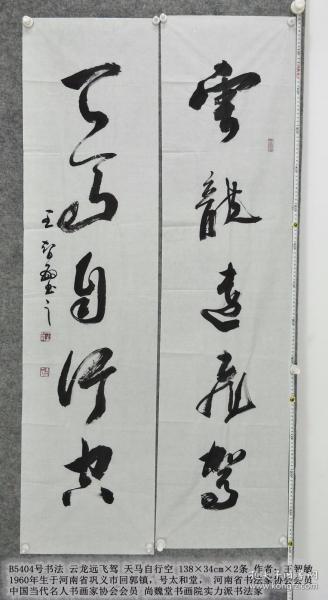 雲龍遠飛駕
天馬自行空
王智敏書
B5404号书法 云龙远飞驾 天马自行空 138×34cm×2条 作者：王智敏
1960年生于河南省巩义市回郭镇，号太和堂， 河南省书法家协会会员
中国当代名人书画家协会会员 尚魏堂书画院实力派书法家